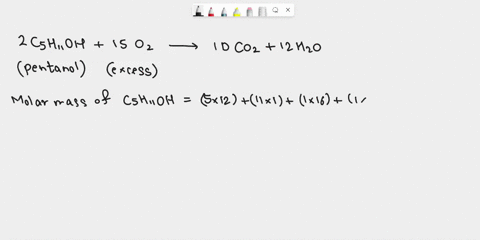 2C₅H₁₁OH + 15 O₂ ⟶ 10 CO₂ + 12 H₂O
(pentanol) (excess)
Molar mass of C₅H₁₁OH = (5×12) + (11×1) + (1×16) + (1